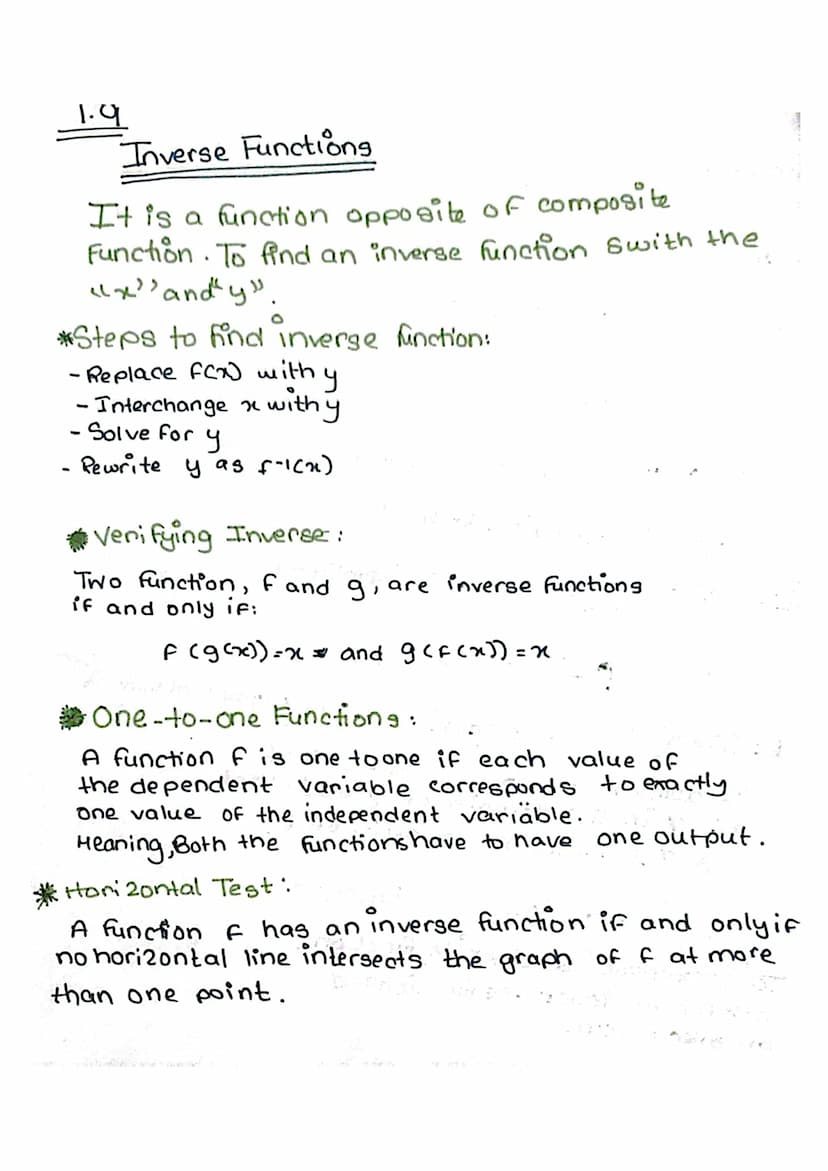 1.9
Inverse Functions
It is a function opposite of composite
function. To find an inverse function swith the
"x" and "y".
*Steps to find inverse function:
- Replace f(x) with y
- Interchange x with y
- Solve for y
- Rewrite y as f-1(x)
* Verifying Inverse:
Two function, f and g, are inverse functions
if and only if:
f(g(x))=x and g(f(x))=x
* One-to-one Functions:
A function f is one to one if each value of
the dependent variable corresponds to exactly
one value of the independent variable.
Meaning, Both the functions have to have one output.
* Horizontal Test:
A function f has an inverse function if and only if
no horizontal line intersects the graph of f at more
than one point.